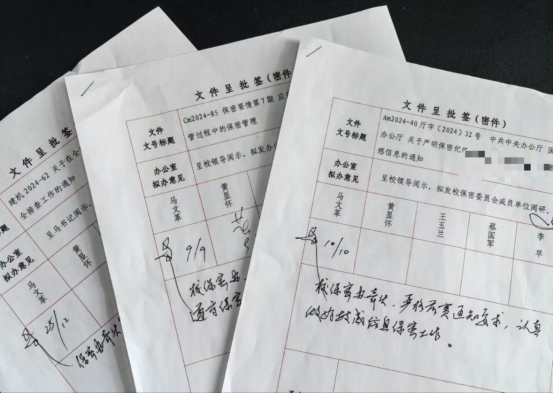 文件呈批签(密件)
建机2024-62 关于在全
全检查工作的通知
办公室
拟办意见
呈马书记阅示,
马文革
黄显怀
文件呈批签(密件)
文件
文号标题
Cm2024-85 保密要情第7期 应
管过程中的保密管理
办公室
拟办意见
呈校领导阅示,拟发办
马文革
黄显怀
9/9
文件呈批签(密件)
文件
文号标题
Am2024-40 厅字〔2024〕32号 中共中央办公厅 国
办公厅 关于严明保密纪
感信息的通知
办公室
拟办意见
呈校领导阅示,拟发校保密委员会成员单位阅研。
马文革
黄显怀
王玉兰
蔡国军
李早
10/10
按保密要求,严格落实通知要求,认真
做好敏感信息保密工作。